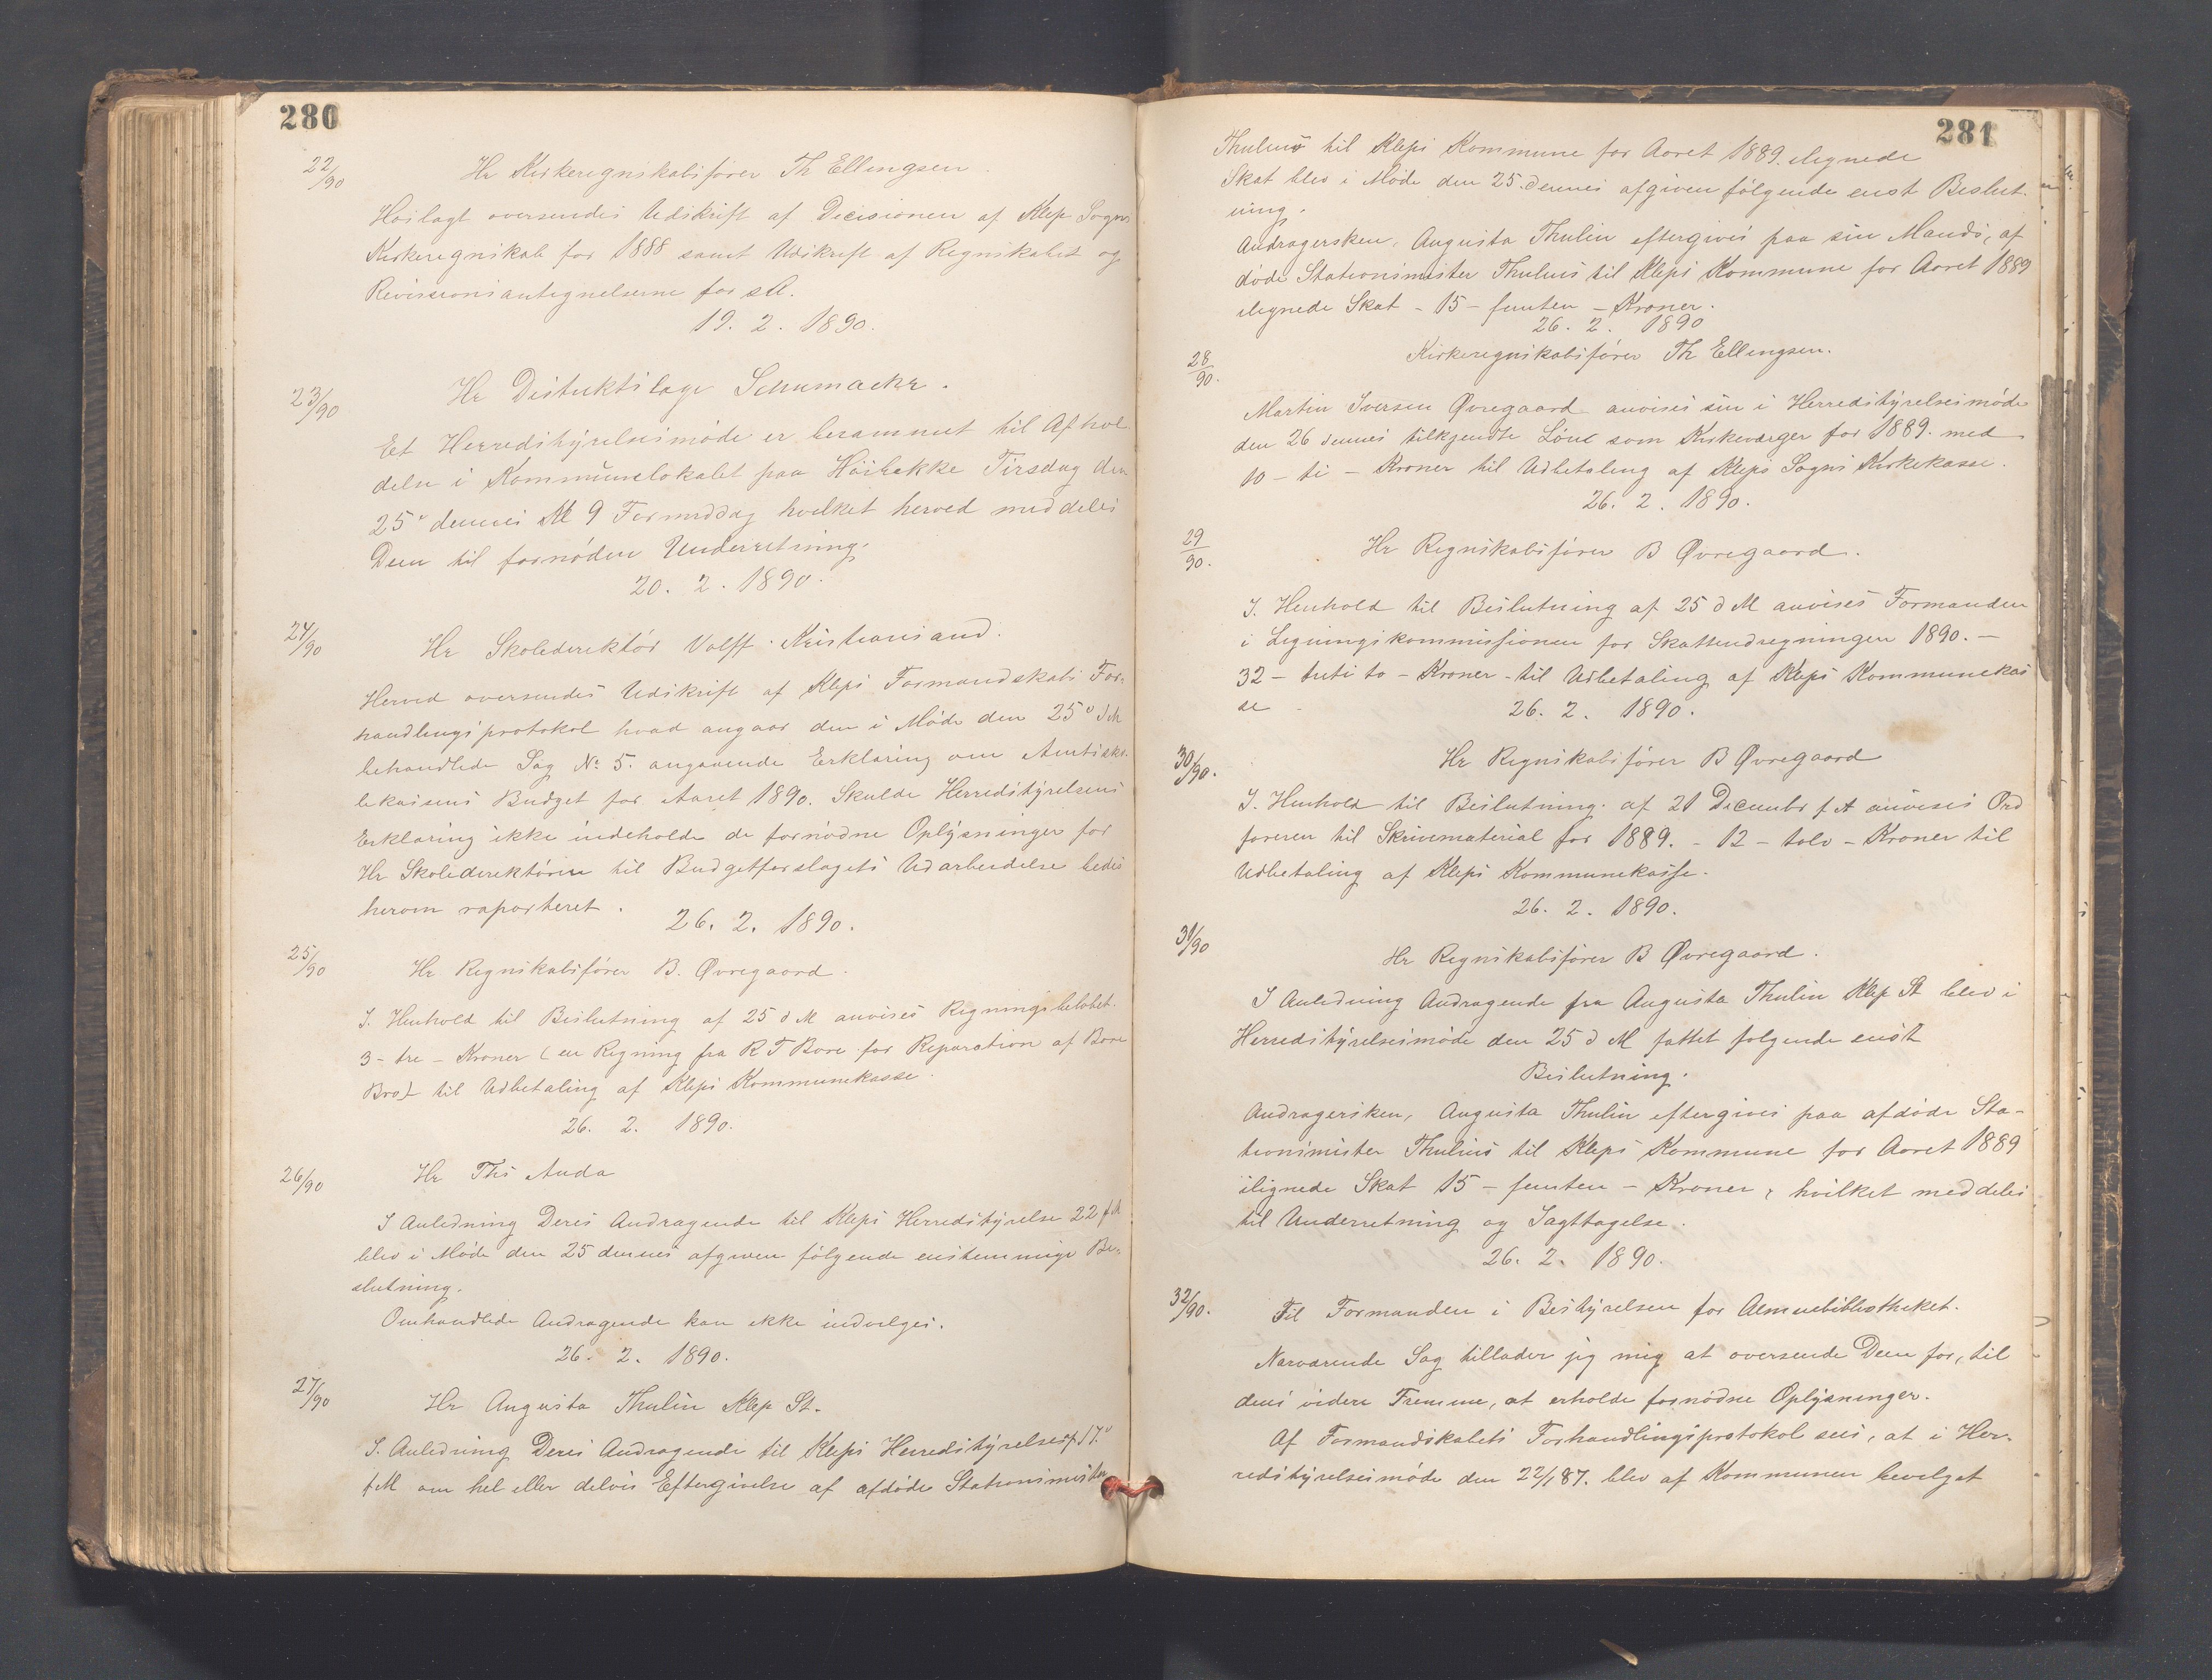 280
22/90
Hr Kirkeregnskabsfører Th Ellingsen.
Hoslagt oversendes Udskrift af Decisionen af Klep Sogns
Kirkeregnskab for 1888 samt Udskrift af Regnskabet og
Revisionsantegnelserne for s A.
19. 2. 1890.
23/90
Hr Distriktslæge Schumacker.
Et Herredstyrelsesmøde er berammet til Afhol
delse i Kommunelokalet paa Høibakke Tirsdag den
25de dennes Kl 9 Formiddag hvilket herved meddeles
Dem til fornøden Underretning.
20. 2. 1890.
24/90
Hr Skoledirektør Volff. Kristiansand.
Herved oversendes Udskrift af Kleps Formandskabs For-
handlingsprotokol hvad angaar den i Møde den 25de d M
behandlede Sag No 5. angaaende Erklæring om Amtssko-
lekassens Budget for Aaret 1890. Skulde Herredstyrelsens
Erklæring ikke indeholde de fornødne Oplysninger for
Hr Skoledirektøren til Budgetforslagets Udarbeidelse bedes
herom raporteret.
26. 2. 1890.
25/90
Hr Regnskabsfører B. Øvregaard.
I. Henhold til Beslutning af 25 d M anvises Regningsbeløbet.
3 - tre - Kroner (en Regning fra R T Bore for Reparation af Bore
Bro) til Udbetaling af Kleps Kommunekasse.
26. 2. 1890.
26/90
Hr Ths Anda
I Anledning Deres Andragende til Kleps Herredstyrelse 22 f M
blev i Møde den 25 dennes afgiven følgende enstemmige Be-
slutning.
Omhandlede Andragende kan ikke indvilges.
26. 2. 1890.
27/90
Hr Augusta Thulin Klep St.
I. Anledning Deres Andragende til Kleps Herredstyrelse 17de
f M om hel eller delvis Eftergivelse af afdøde Stationsmester
281
Thulins til Kleps Kommune for Aaret 1889. ilignede
Skat blev i Møde den 25. dennes afgiven følgende enst Beslut-
ning.
Andragersken, Augusta Thulin eftergives paa sin Mands, af
døde Stationsmester Thulins til Kleps Kommune for Aaret 1889
ilignede Skat - 15 - femten - Kroner.
26. 2. 1890
28/90.
Kirkeregnskabsfører Th Ellingsen.
Martin Iversen Øvregaard anvises sin i Herredstyrelsesmøde
den 26 dennes tilkjendte Løn som Kirkeværger for 1889. med
10 - ti - Kroner til Udbetaling af Kleps Sogns Kirkekasse.
26. 2. 1890.
29/90.
Hr Regnskabsfører B Øvregaard.
I. Henhold til Beslutning af 25 d M anvises Formanden
i Ligningskommissionen for Skatteudregningen 1890. —
32 - treti to - Kroner - til Udbetaling af Kleps Kommunekas
se
26. 2. 1890.
30/90.
Hr Regnskabsfører B Øvregaard
I. Henhold til Beslutning af 21 December f A anvises Ord
føreren til Skrivmaterial for 1889. - 12 - tolv - Kroner til
Udbetaling af Kleps Kommunekasse.
26. 2. 1890.
31/90
Hr Regnskabsfører B Øvregaard.
I Anledning Andragende fra Augusta Thulin Klep St blev i
Herredstyrelsesmøde den 25 d M fattet følgende enst
Beslutning.
Andragersken, Augusta Thulin eftergives paa afdøde Sta-
tionsmester Thulins til Kleps Kommune for Aaret 1889
ilignede Skat 15 - femten - Kroner, hvilket meddeles
til Underretning og Iagttagelse.
26. 2. 1890.
32/90.
Til Formanden i Bestyrelsen for Almuebibliotheket.
Nærværende Sag tillader jeg mig at oversende Dem for, til
dens videre Fremme, at erholde fornødne Oplysninger.
Af Formandskabets Forhandlingsprotokol sees, at i Her-
redstyrelsesmøde den 22/1 87. blev af Kommunen bevilget